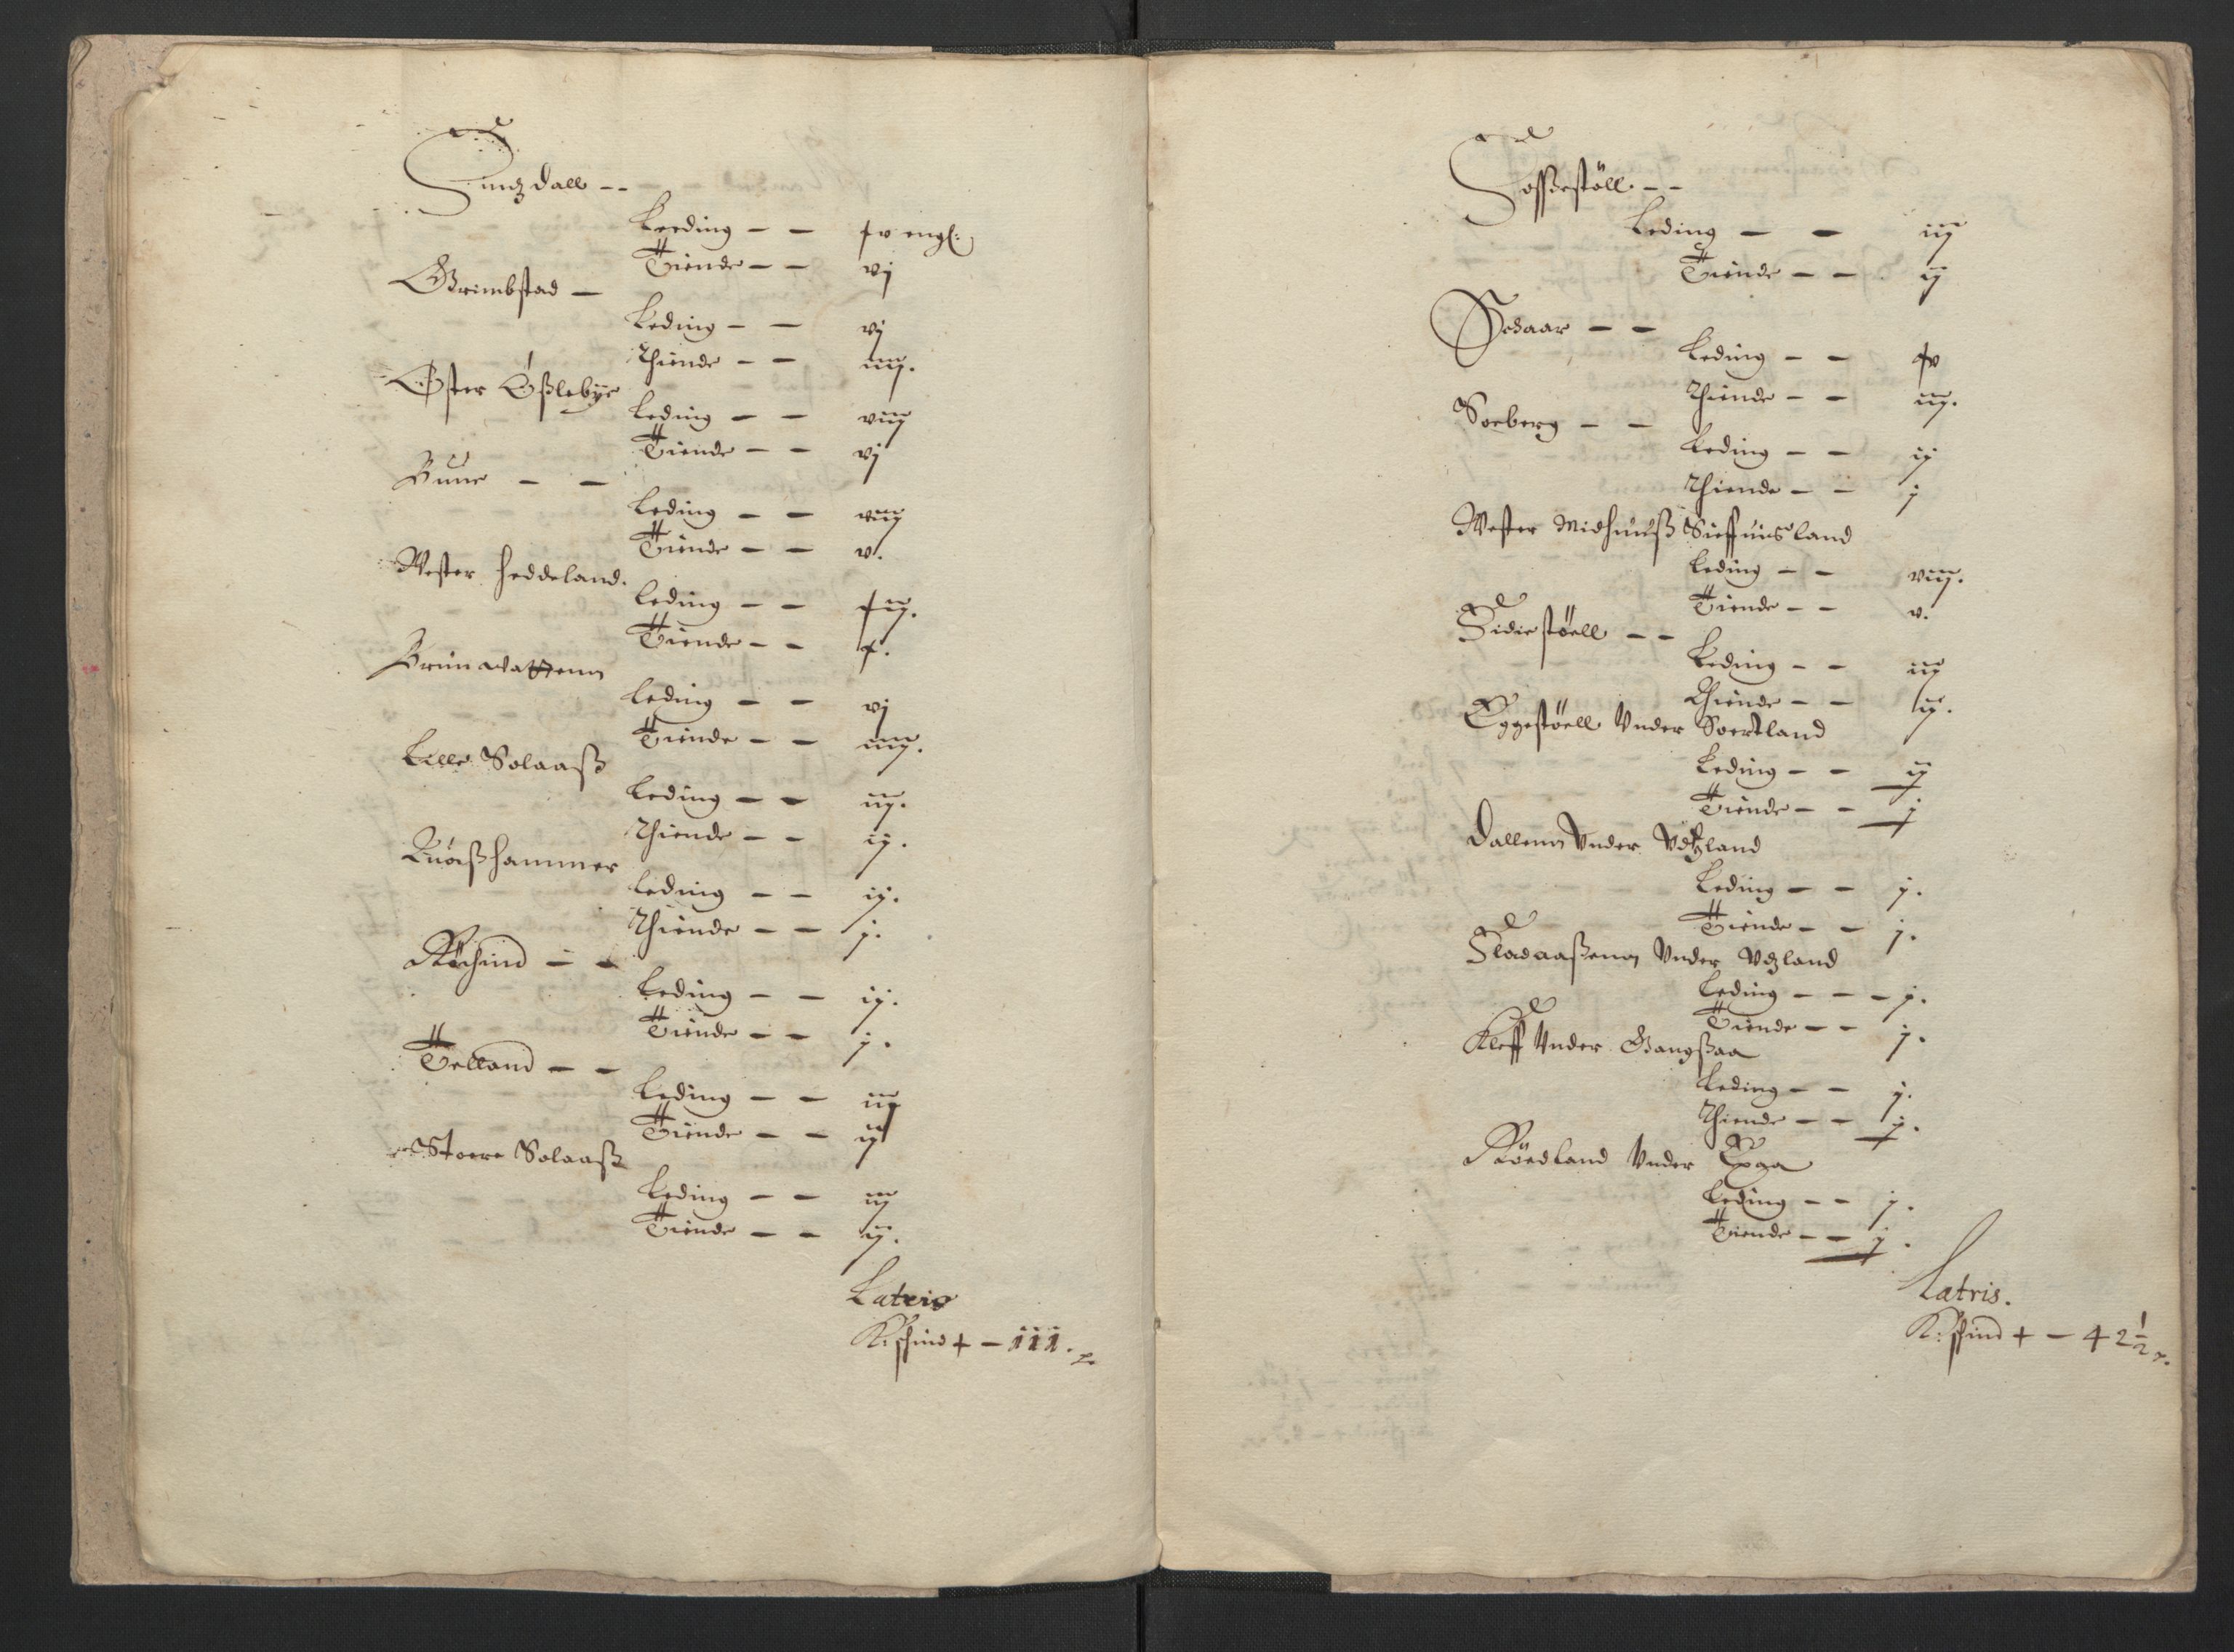 Sundzdall --
Leeding - - xv engl:
Tiende - - vj
Grimbstad -
Leding - - vj
Thiende - - iiij.
Øster Øßlebye
Leding - - viij
Tiende - - vj
Buue - -
Leding - - viij
Tiende - - v.
Wester Heddeland.
Leding - - xij.
Tiende - - x.
Brunvattenn
Leding - - vj
Tiende - - iiij.
Lille Solaaß
Leding - - iij.
Thiende - - ij.
Quaßhammer
Leding - - ij.
Thiende - - j.
- -
Leding - - ij.
Tiende - - j.
Telland - -
Leding - - iij
Tiende - - ij
Stoere Solaaß
Leding - - iij
Tiende - - ij.
Latris
K: schind + - 111.
Foßestöll --
Leding - - iij
Tiende - - ij
- -
Leding - - xv
Thiende - - iij.
Soeberg - -
Leding - - ij
Thiende - - j
Wester Midhuuß Land
Leding - - viij.
Tiende - - v.
Sidiestöell --
Leding - - iij
Thiende - - ij.
Eggestöell Vnder Soertland
Leding - - ij
Tiende - - j
Dallenn Vnder Vdtzland
Leding - - j.
Tiende - - j.
Sladaaßenn Vnder Vdzland
Leding - - - j.
Tiende - - j.
Kleff Vnder Gangßaa
Leding - - j.
Thiende - - j.
Röedland Vnder
Leding - - j.
Tiende - - j.
Latris.
K: schind + - 42 1/2